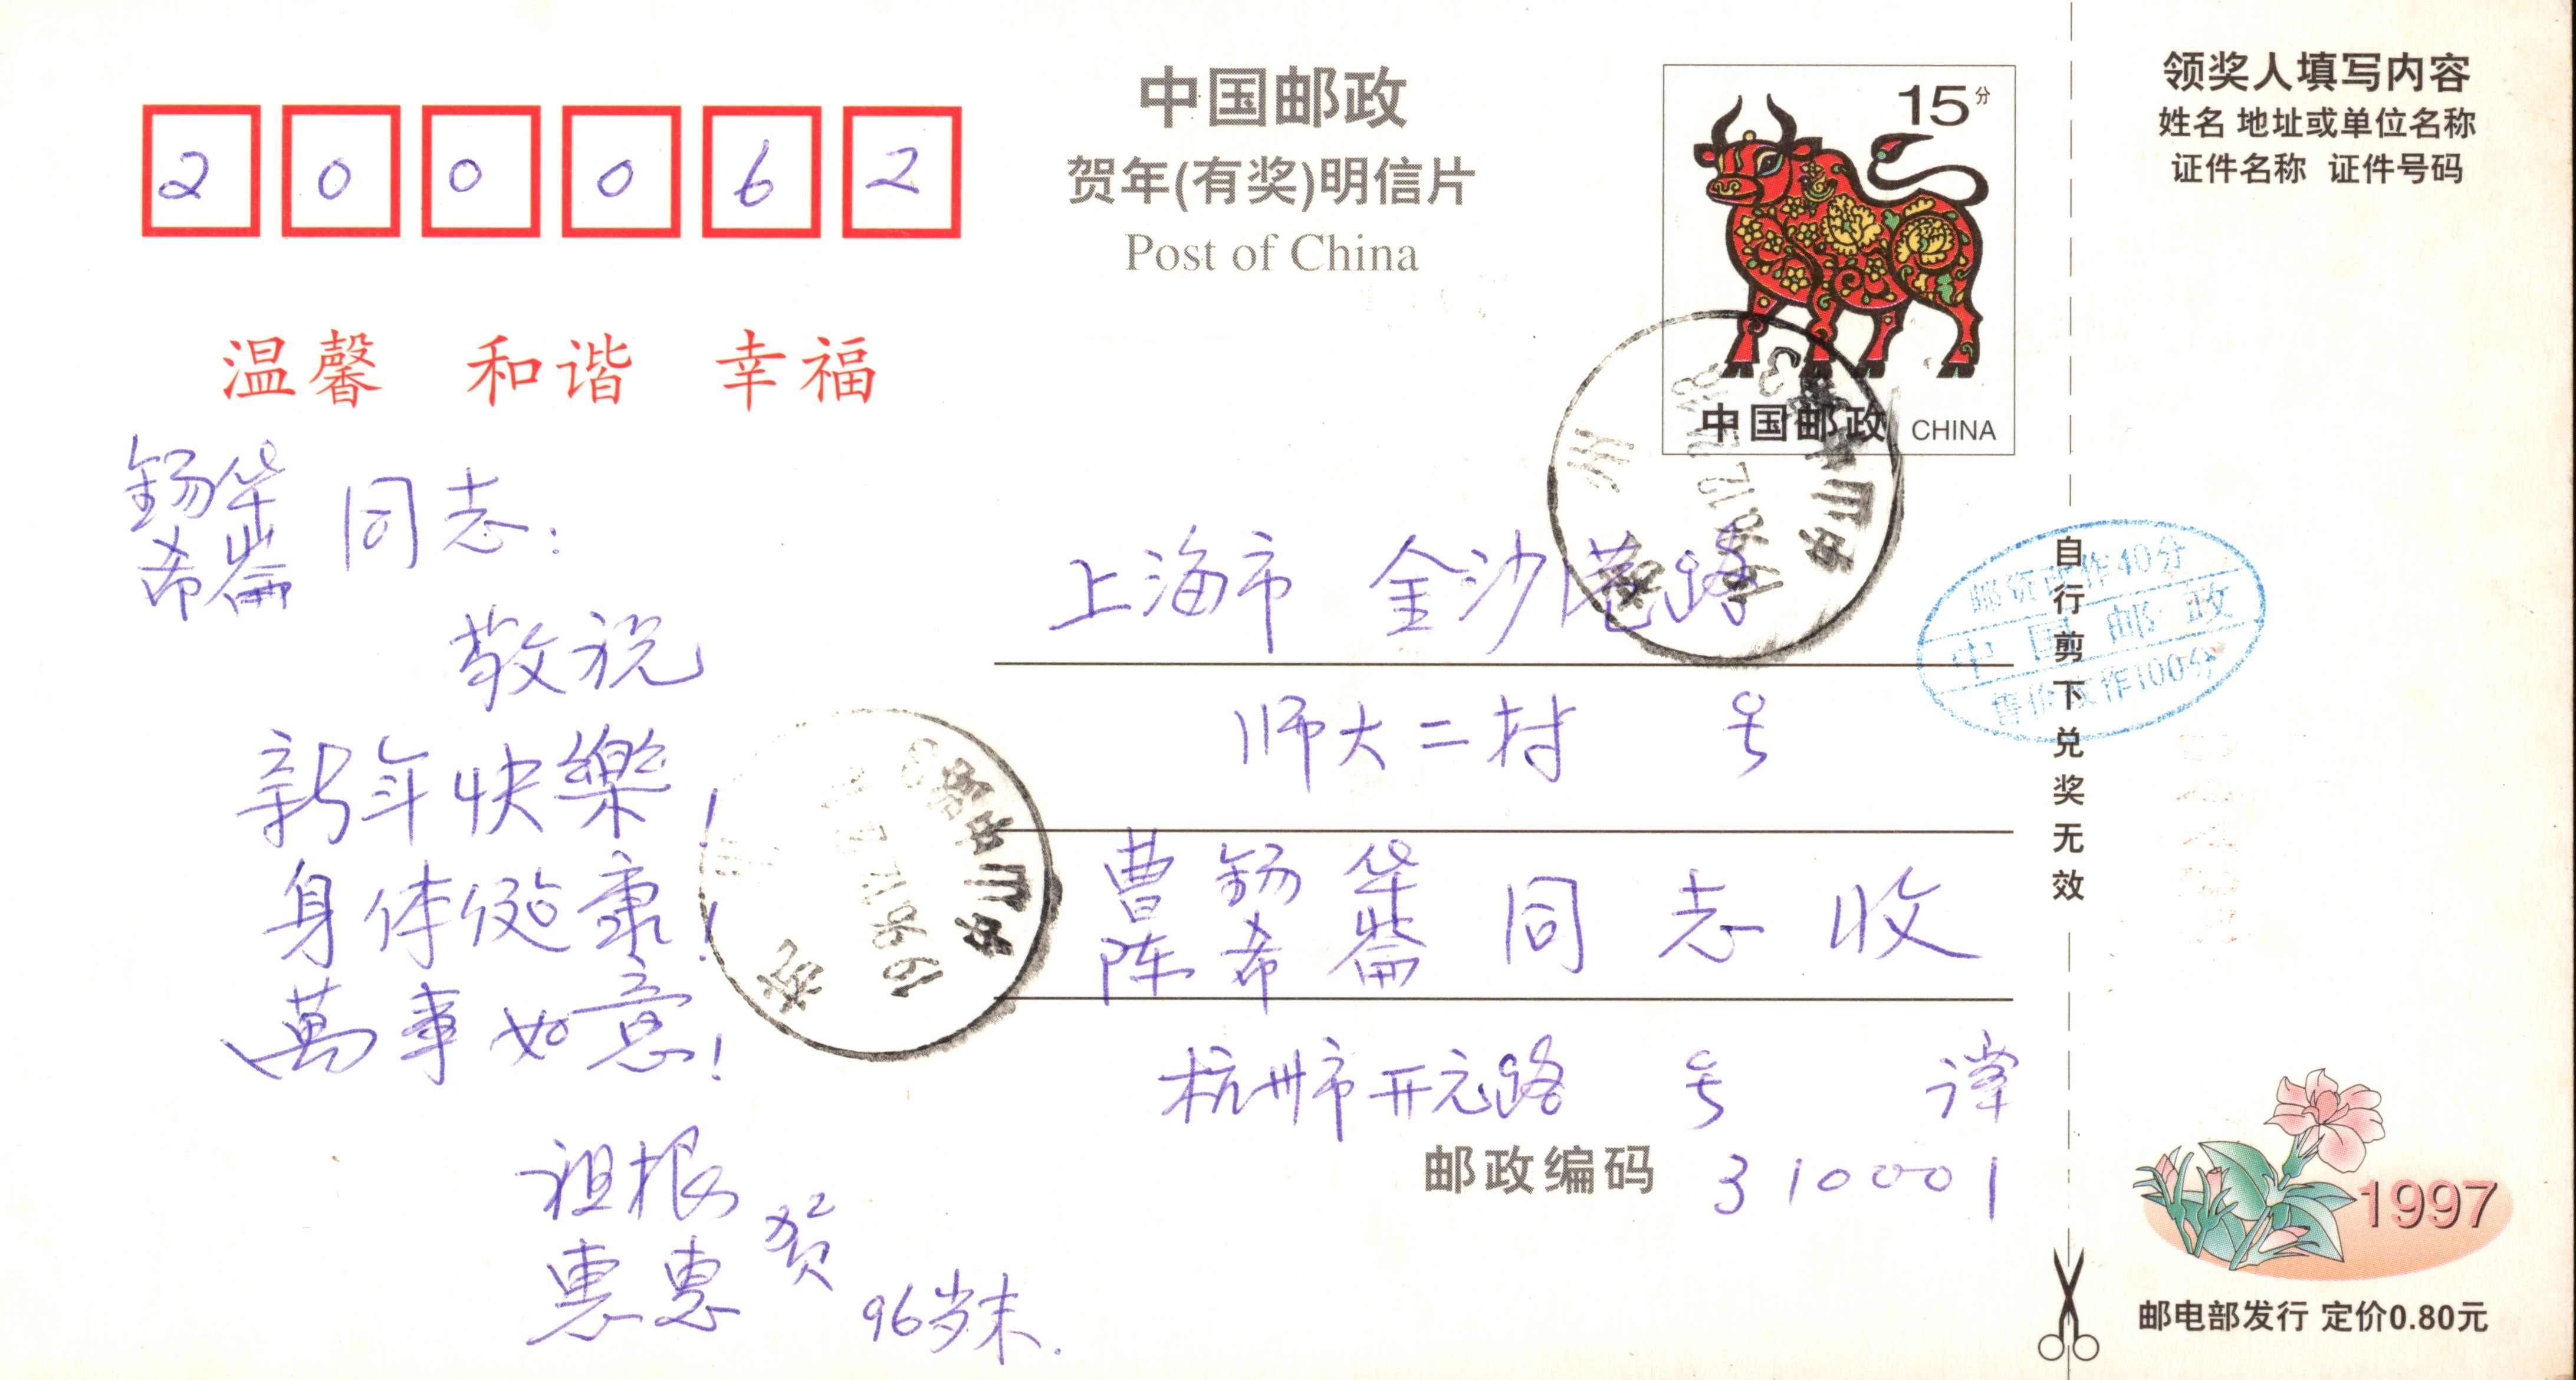 200062
中国邮政
贺年(有奖)明信片
Post of China
15分
中国邮政 CHINA
温馨 和谐 幸福
锡华
希崙 同志:
敬祝
新年快樂!
身体健康!
萬事如意!
祖根
惠惠 贺
96岁末.
上海市 金沙港路
师大二村 号
曹锡华
陈希崙 同志收
杭州市开元路 号 译
邮政编码 310001
邮资改作40分
中国邮政
售价改作100分
自行剪下兑奖无效
领奖人填写内容
姓名 地址或单位名称
证件名称 证件号码
1997
邮电部发行 定价0.80元